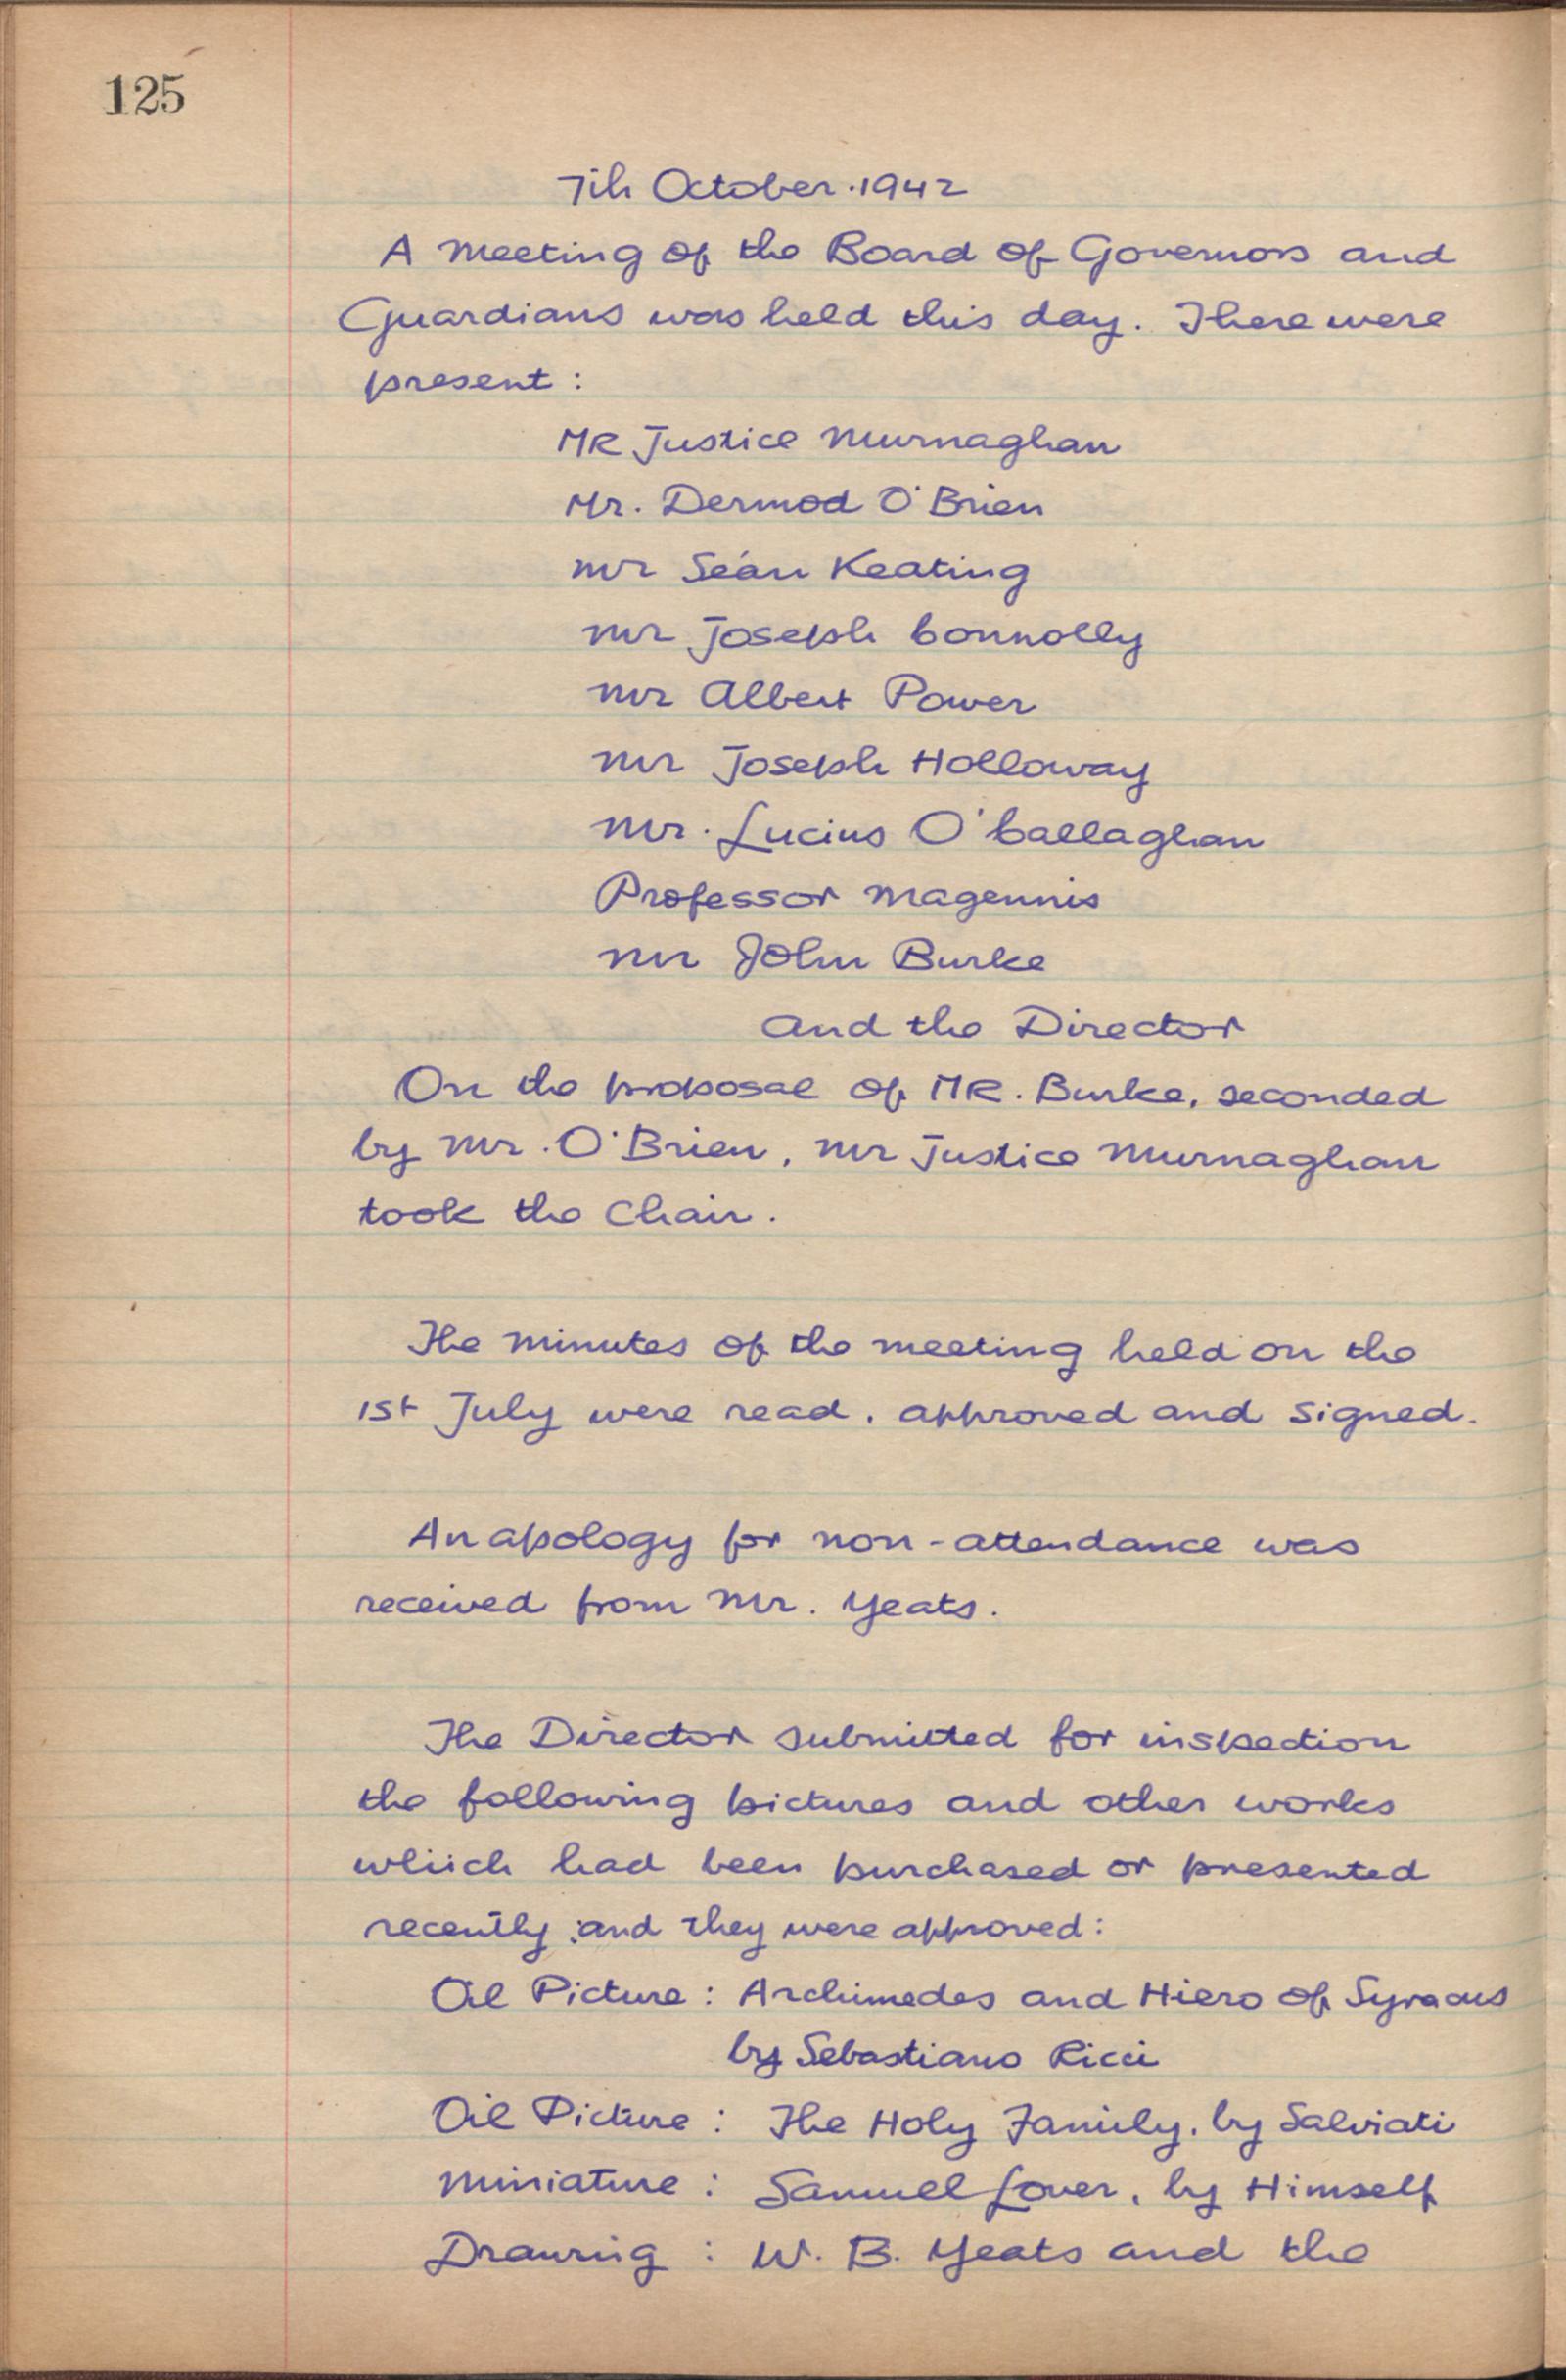 125
7th October. 1942
A meeting of the Board of Governors and
Guardians was held this day. There were
present:
MR Justice Murnaghan
Mr. Dermod O'Brien
Mr Seán Keating
Mr Joseph Connolly
Mr Albert Power
Mr Joseph Holloway
Mr. Lucius O'Callaghan
Professor Magennis
Mr John Burke
and the Director
On the proposal of MR. Burke, seconded
by Mr. O'Brien, Mr Justice Murnaghan
took the Chair.
The minutes of the meeting held on the
1st July were read, approved and signed.
An apology for non-attendance was
received from Mr. Yeats.
The Director submitted for inspection
the following pictures and other works
which had been purchased or presented
recently and they were approved:
Oil Picture: Archimedes and Hiero of Syracus
by Sebastiano Ricci
Oil Picture: The Holy Family, by Salviati
Miniature: Samuel Lover, by Himself
Drawing: W. B. Yeats and the